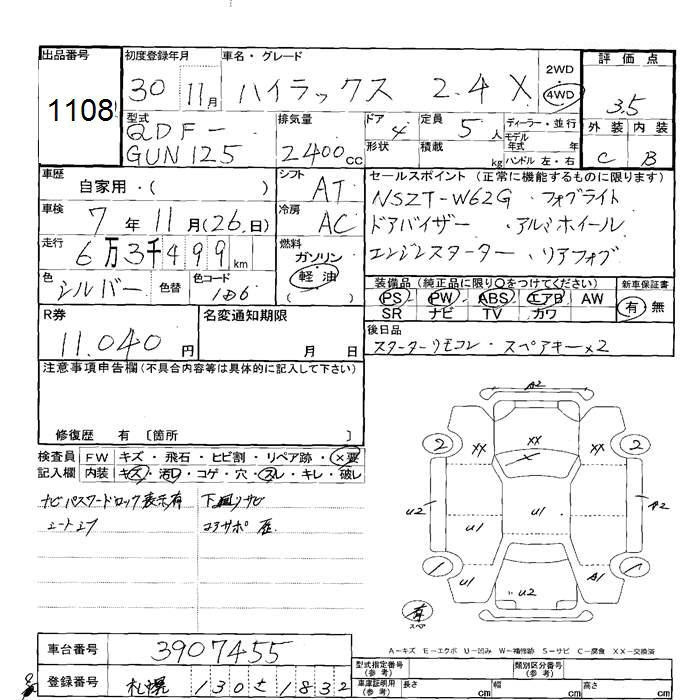 出品番号 初度登録年月 車名・グレード 2WD 評価点
1108 30 11月 ハイラックス 2.4 X 4WD 3.5
型式 排気量 ドア 定員 ディーラー・並行 外装 内装
QDF- 4 5人 モデル年式 年
GUN125 2400cc 形状 積載 kg ハンドル 左・右 C B
車歴 自家用・( ) シフト AT セールスポイント (正常に機能するものに限ります)
NSZT-W62G ・フォグライト
車検 7年11月(26日) 冷房 AC ドアバイザー ・アルミホイール
走行 6万3千499km 燃料 ガソリン エンジンスターター ・リアフォグ
軽・油
( )
色 シルバー 色替 色コード 装備品 (純正品に限り○をつけてください) 新車保証書
PS PW ABS エアB AW 有・無
SR ナビ TV カワ
R券 名変通知期限 後日品
11.040円 月 日 スターターリモコン・スペアキー×2
注意事項申告欄(不具合内容等は具体的に記入して下さい)
修復歴 有 〔箇所 〕
検査員 FW キズ・飛石・ヒビ割・リペア跡・×要
記入欄 内装 キズ・汚レ・コゲ・穴・スレ・キレ・破レ
ナビパスワードロック表示有 下廻りサビ
A2
2 XX XX XX 2
U2 U1 U1 A2
1 U1 U2 A1 1
有
スペア
A-キズ E-エクボ U-凹み W-補修跡 S-サビ C-腐食 XX-交換済
車台番号 3907455
型式指定番号(参考) 類別区分番号(参考)
登録番号 札幌 130 さ 1832
車庫証明用(参考) 長さ cm 幅 cm 高さ cm